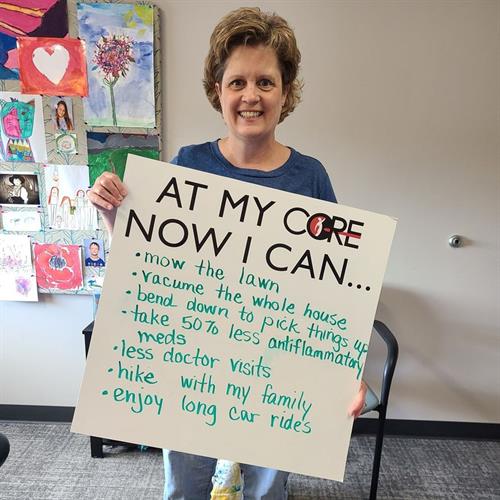 AT MY CORE
NOW I CAN...
• mow the lawn
• vacume the whole house
• bend down to pick things up
• take 50% less antiflammatory
meds
• less doctor visits
• hike with my family
• enjoy long car rides